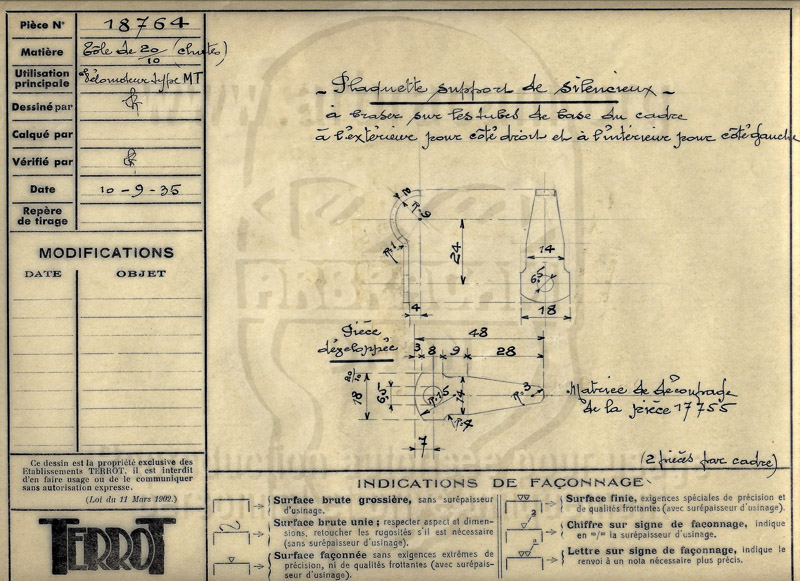 Pièce N° 18764
Matière Tôle de 20/10 (chutes)
Utilisation principale Vélomoteur type MT
Dessiné par
Calqué par
Vérifié par
Date 10-9-35
Repère de tirage
MODIFICATIONS
DATE OBJET
Ce dessin est la propriété exclusive des
Etablissements TERROT. il est interdit
d'en faire usage ou de le communiquer
sans autorisation expresse.
(Loi du 11 Mars 1902.)
TERROT
- Plaquette support de silencieux -
à braser sur les tubes de base du cadre
à l'extérieur pour côté droit et à l'intérieur pour côté gauche
2
R=9
R=1
24
14
6,5
4
18
Pièce
développée
48
3 8 9 28
20/10
18
6,5
R=15
14
R=3
R=4
7
Matrice de découpage
de la pièce 17755
(2 pièces par cadre)
INDICATIONS DE FAÇONNAGE
Surface brute grossière, sans surépaisseur
d'usinage.
Surface brute unie; respecter aspect et dimen-
sions, retoucher les rugosités s'il est nécessaire
(sans surépaisseur d'usinage).
Surface façonnée sans exigences extrêmes de
précision, ni de qualités frottantes (avec surépais-
seur d'usinage).
Surface finie, exigences spéciales de précision et
de qualités frottantes (avec surépaisseur d'usinage).
2
Chiffre sur signe de faconnage, indique
en m/m la surépaisseur d'usinage.
a
Lettre sur signe de façonnage, indique le
renvoi à un nota nécessaire plus précis.